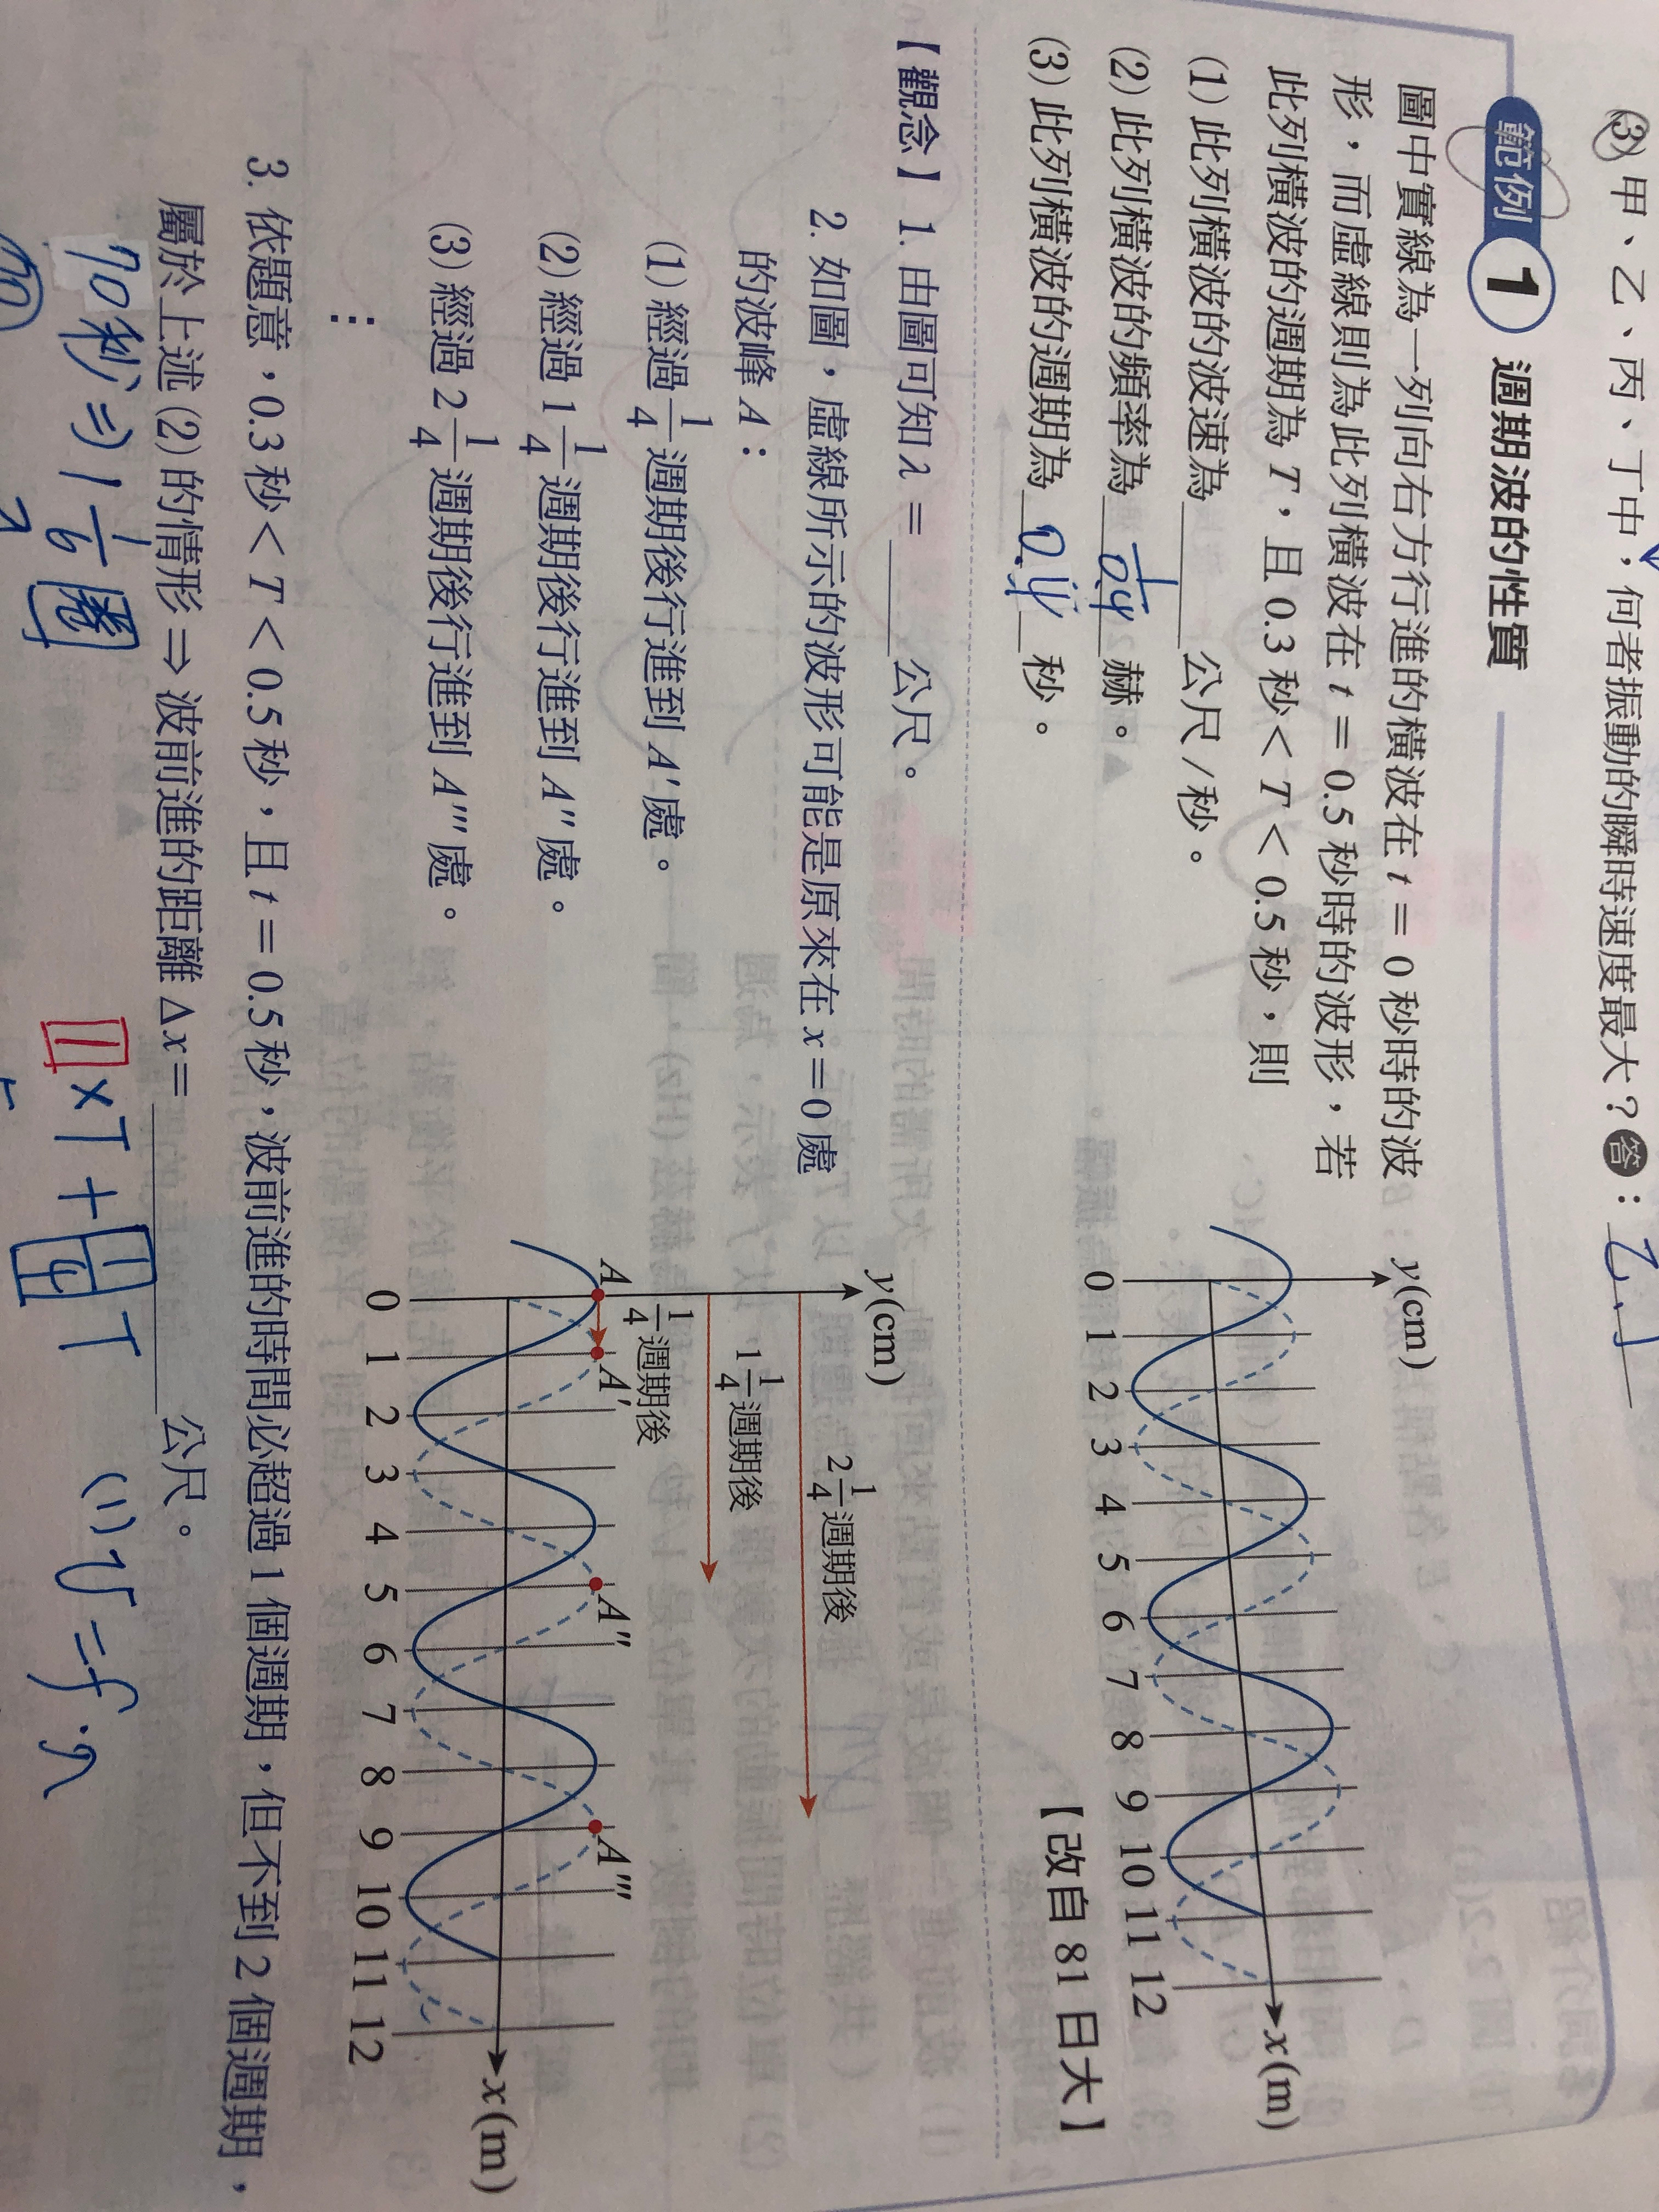 ③ 甲、乙、丙、丁中，何者振動的瞬時速度最大？答：乙、丁
範例 1 週期波的性質
圖中實線為一列向右方行進的橫波在 t = 0 秒時的波
形，而虛線則為此列橫波在 t = 0.5 秒時的波形，若
此列橫波的週期為 T，且 0.3 秒 < T < 0.5 秒，則
(1) 此列橫波的波速為______公尺 / 秒。
(2) 此列橫波的頻率為 1/0.4 赫。
(3) 此列橫波的週期為 0.4 秒。
y(cm)
x(m)
0 1 2 3 4 5 6 7 8 9 10 11 12
【改自 81 日大】
【觀念】1. 由圖可知 λ = ______公尺。
2. 如圖，虛線所示的波形可能是原來在 x = 0 處
的波峰 A：
(1) 經過 1/4 週期後行進到 A′ 處。
(2) 經過 1 1/4 週期後行進到 A″ 處。
(3) 經過 2 1/4 週期後行進到 A‴ 處。
⋮
y(cm)
2 1/4 週期後
1 1/4 週期後
1/4 週期後
A A′ A″ A‴
x(m)
0 1 2 3 4 5 6 7 8 9 10 11 12
3. 依題意，0.3 秒 < T < 0.5 秒，且 t = 0.5 秒，波前進的時間必超過 1 個週期，但不到 2 個週期，
屬於上述 (2) 的情形 ⇒ 波前進的距離 Δx = ______公尺。
70 秒 ⇒ 1 1/6 圈
□ × T + 1/4 T
(1) v = f · λ